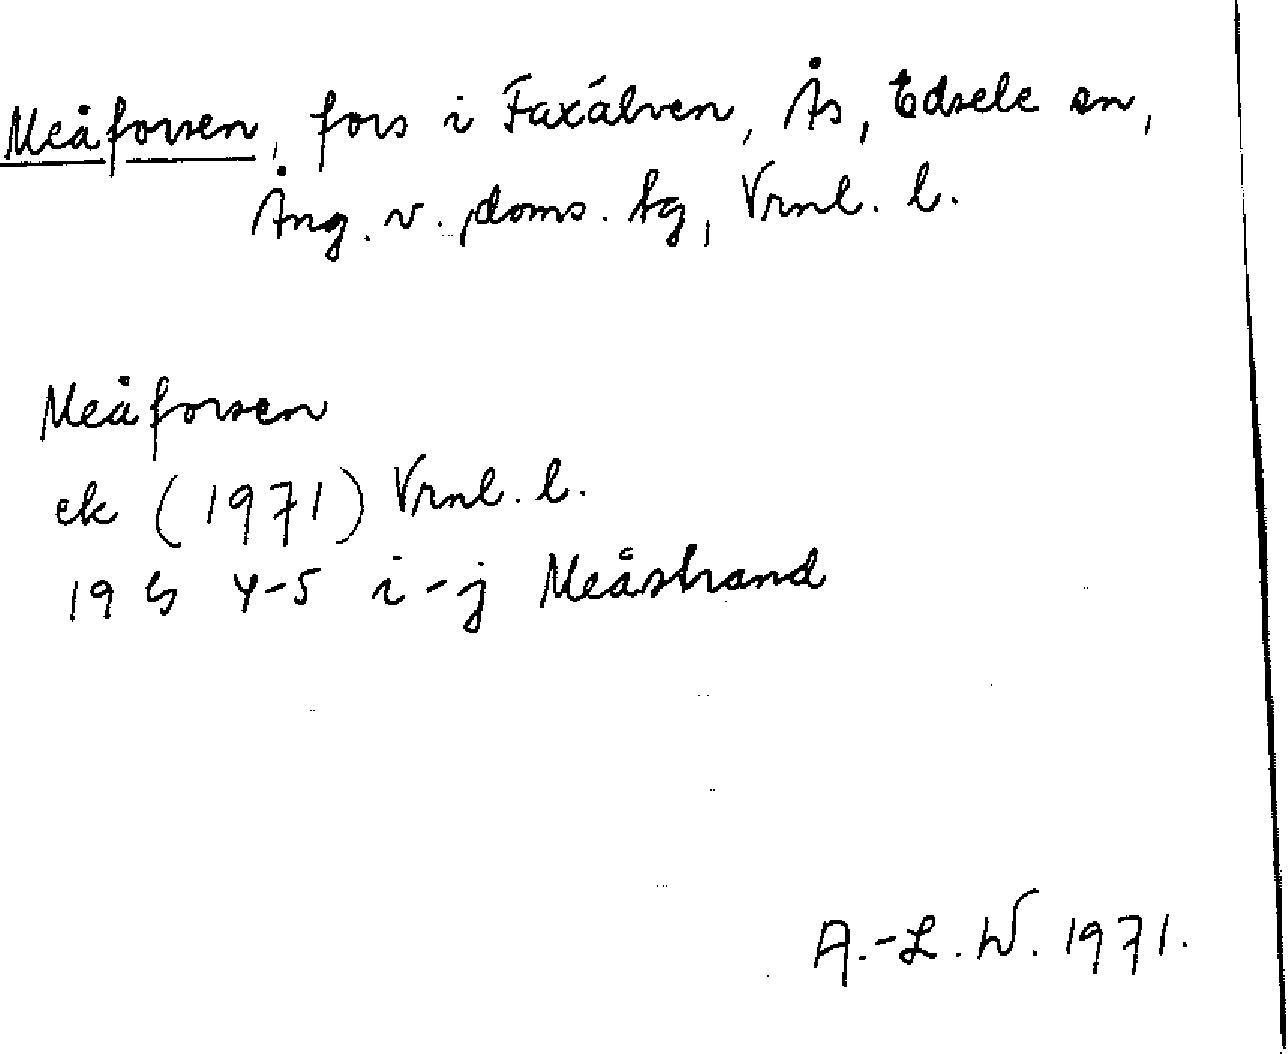 Meåforsen, fors i Faxälven, Ås, Edsele sn,
Ång. v. doms. tg, Vrnl. l.
Meåforsen
ek (1971) Vrnl. l.
19 G 4-5 i-j Meåstrand
A.-L. W. 1971.